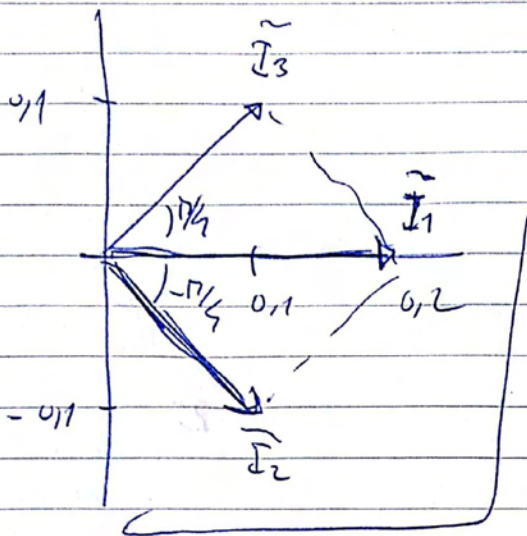 Ĩ₃
0,1
π/4
Ĩ₁
-π/4
0,1
0,2
-0,1
Ĩ₂